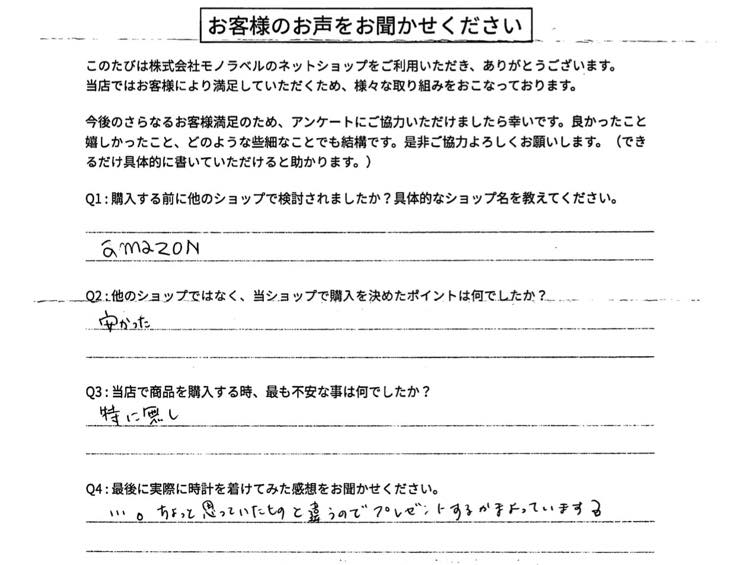 お客様のお声をお聞かせください
このたびは株式会社モノラベルのネットショップをご利用いただき、ありがとうございます。
当店ではお客様により満足していただくため、様々な取り組みをおこなっております。
今後のさらなるお客様満足のため、アンケートにご協力いただけましたら幸いです。良かったこと
嬉しかったこと、どのような些細なことでも結構です。是非ご協力よろしくお願いします。（でき
るだけ具体的に書いていただけると助かります。）
Q1 : 購入する前に他のショップで検討されましたか？具体的なショップ名を教えてください。
amazon
Q2 : 他のショップではなく、当ショップで購入を決めたポイントは何でしたか？
安かった
Q3 : 当店で商品を購入する時、最も不安な事は何でしたか？
特に無し
Q4 : 最後に実際に時計を着けてみた感想をお聞かせください。
…。ちょっと思っていたものと違うのでプレゼントするかまよっています